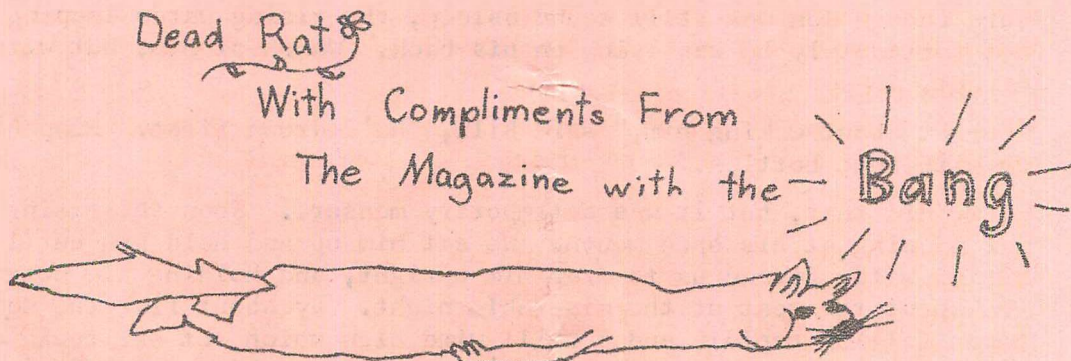 Dead Rat
With Compliments From
The Magazine with the Bang